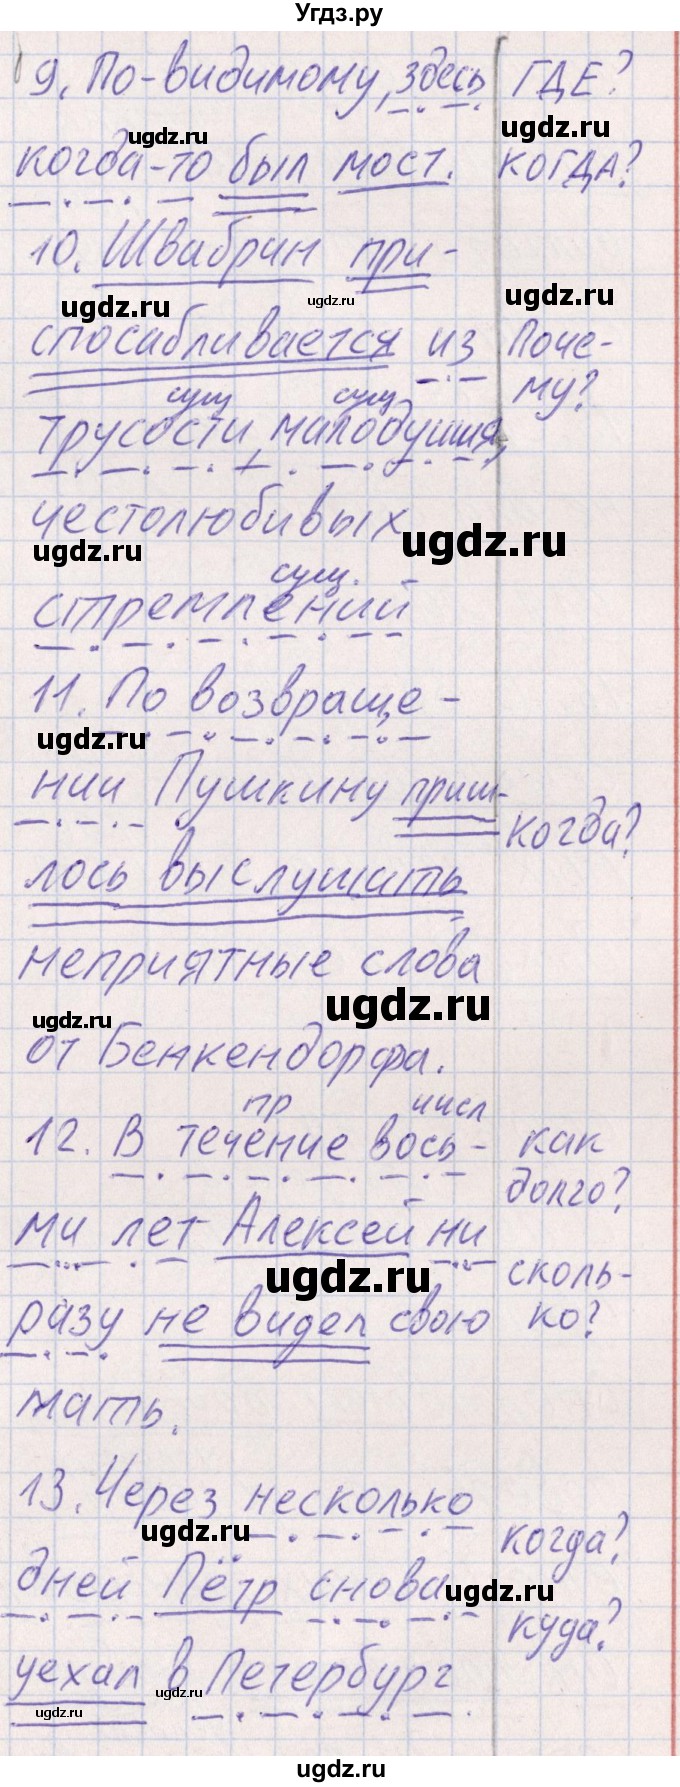 Угдз.ру
9. По-видимому, здесь ГДЕ?
ugdz.ru ugdz.ru
когда-то был мост. КОГДА?
10. Швабрин при-
ugdz.ru ugdz.ru ugdz.ru
спосабливается из Поче-
му?
сущ сущ
трусости, малодушия,
честолюбивых
ugdz.ru ugdz.ru
сущ.
стремлений
11. По возвраще-
ugdz.ru
нии Пушкину приш-
когда?
лось выслушать
неприятные слова
ugdz.ru ugdz.ru
от Бенкендорфа.
пр числ
12. В течение вось- как
долго?
ми лет Алексей ни
ugdz.ru сколь-
разу не видел свою ко?
мать.
13. Через несколько
ugdz.ru когда?
дней Пётр снова
ugdz.ru куда?
уехал в Петербург
ugdz.ru ugdz.ru
ugdz.ru